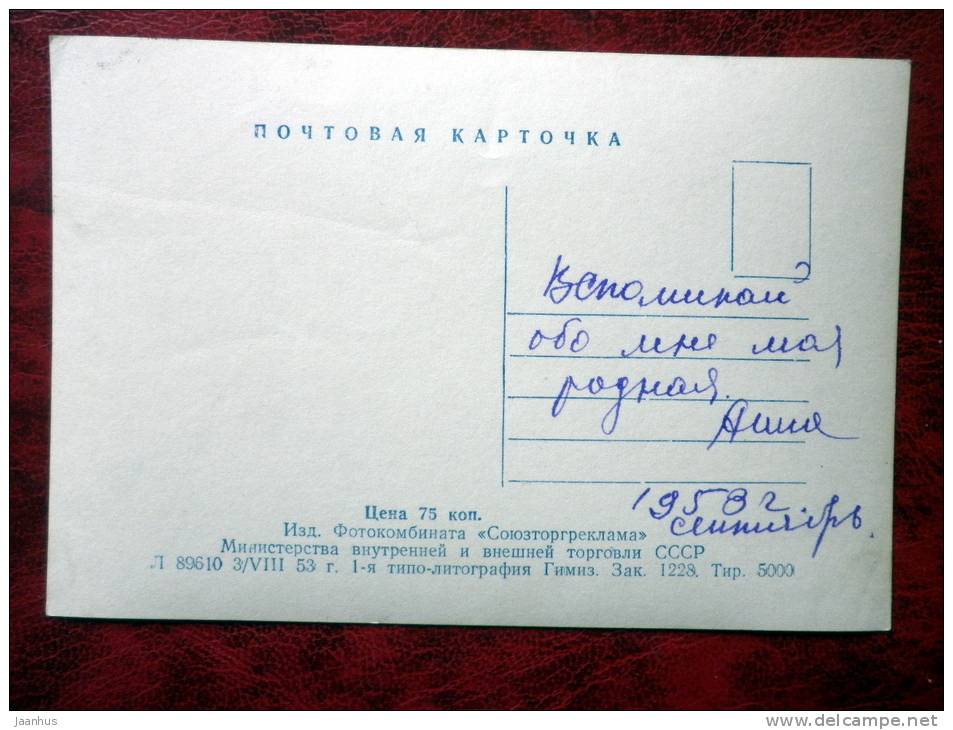 ПОЧТОВАЯ КАРТОЧКА
Вспоминай
обо мне моя
родная.
1953 г
сентябрь.
Цена 75 коп.
Изд. Фотокомбината «Союзторгреклама»
Министерства внутренней и внешней торговли СССР
Л 89610 3/VIII 53 г. 1-я типо-литография Гимиз. Зак. 1228. Тир. 5000
jaanhus
www.delcampe.net